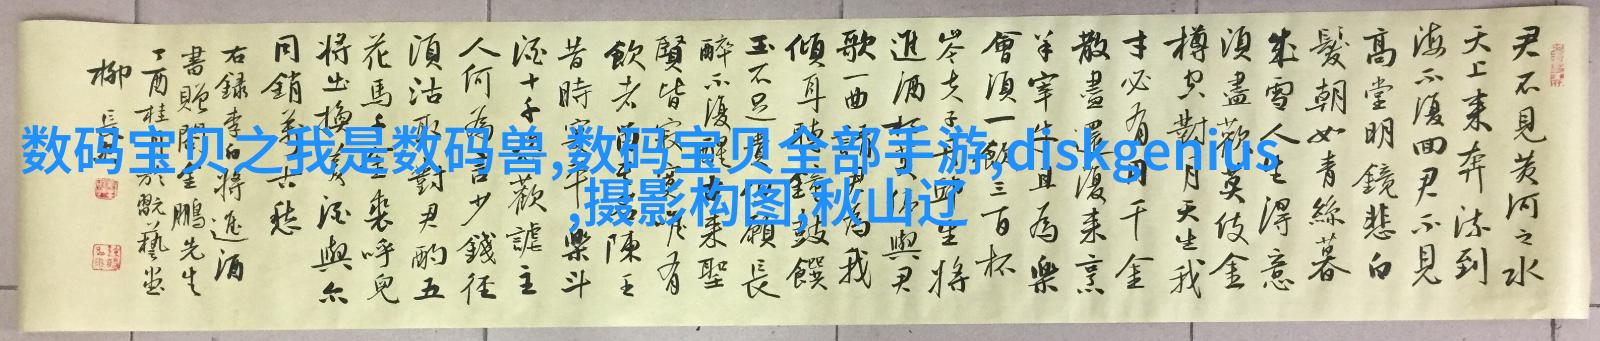 君不見黄河之水
天上来奔流到
海不復回君不見
高堂明鏡悲白
髮朝如青絲暮
成雪人生得意
須盡歡莫使金
樽空對月天生我
才必有用千金
散盡還復来烹
羊宰牛且為樂
會須一飲三百杯
岑夫子丹丘生將
進酒杯莫停與君
歌一曲請君為我
傾耳聽鐘鼓饌
玉不足貴願長
醉不復醒古来聖
賢皆寂寞唯有
飲者留其名陳王
昔時宴平樂斗
酒十千恣歡謔主
人何為言少錢径
須沽取對君酌五
花馬千金裘呼兒
將出換美酒與尔
同銷萬古愁
右録李白將進酒
書贈金鵬先生
丁酉桂月於翫藝堂
柳
数码宝贝之我是数码兽,数码宝贝全部手游,diskgenius
,摄影构图,秋山辽